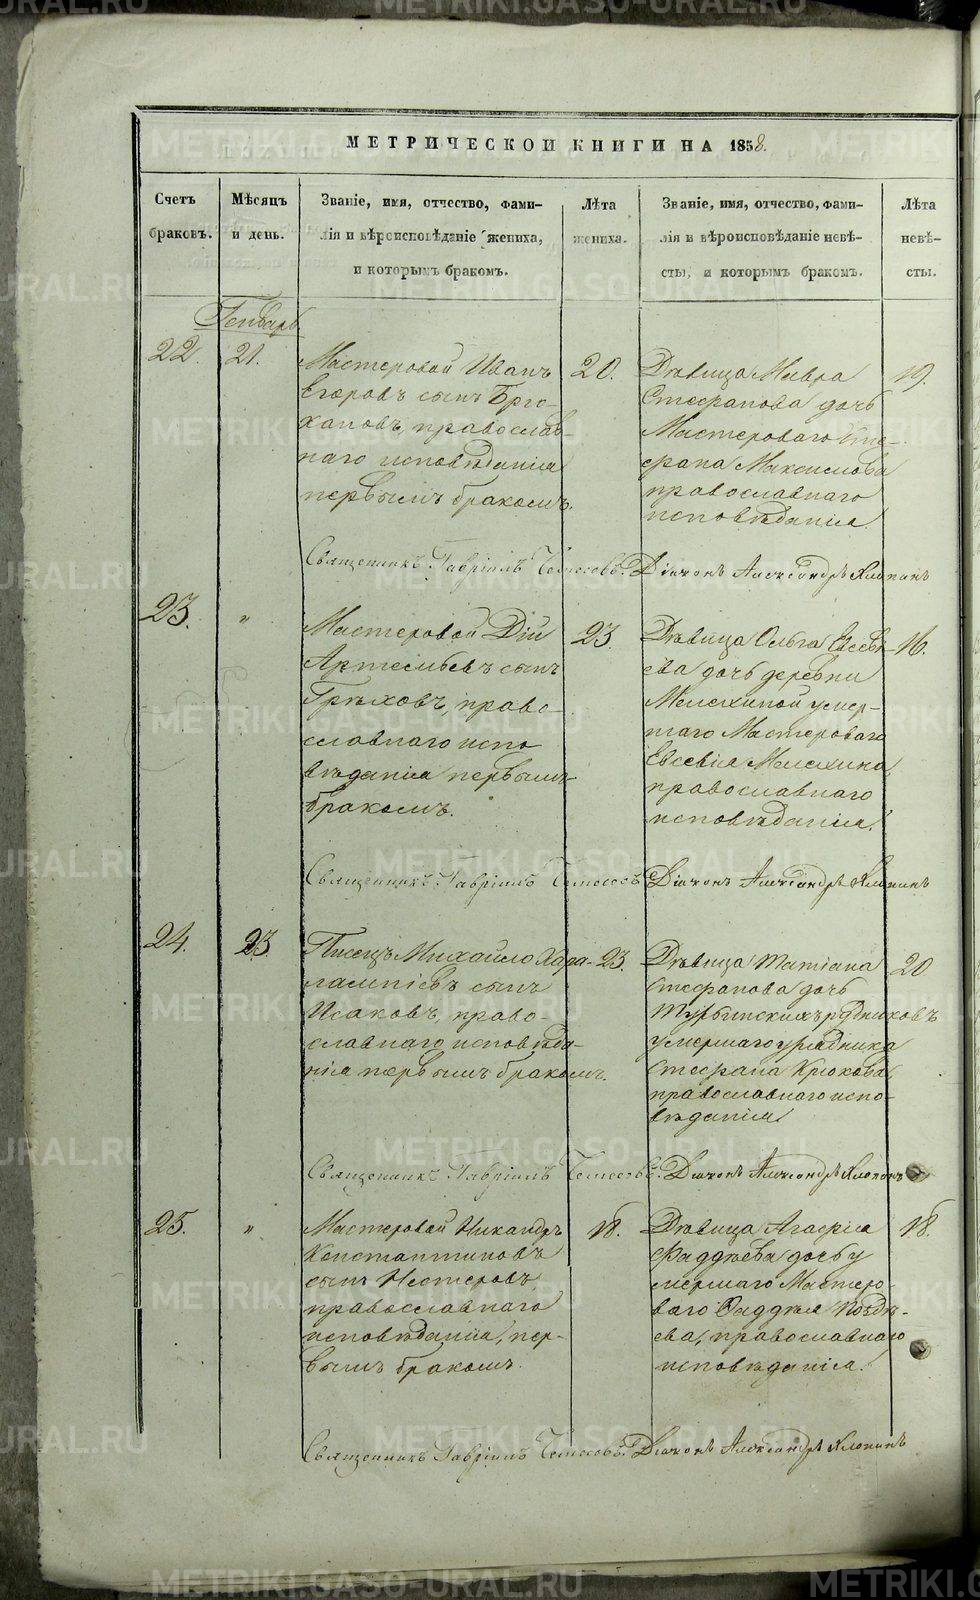 МЕТРИЧЕСКОЙ КНИГИ НА 1858.
Счетъ
браковъ.
Мѣсяцъ
и день.
Званіе, имя, отчество, фами-
лія и вѣроисповѣданіе жениха,
и которымъ бракомъ.
Лѣта
жениха.
Званіе, имя, отчество, фами-
лія и вѣроисповѣданіе невѣ-
сты, и которымъ бракомъ.
Лѣта
невѣ-
сты.
Генварь
22.
21.
Мастеровой Иванъ
Егоровъ сынъ Брю-
хановъ, православ-
наго исповѣданія
первымъ бракомъ.
20.
Дѣвица Мавра
Стефанова дочь
Мастероваго Сте-
фана Максимова
православнаго
исповѣданія.
19.
Священникъ Гавріилъ Діаконъ Александръ Хлопинъ
23.
"
Мастеровой Дій
Артемьевъ сынъ
Грѣховъ, право-
славнаго испо
вѣданія первымъ
бракомъ.
23.
Дѣвица Ольга Евсеві-
ева дочь деревни
Мелехиной умер-
шаго Мастероваго
Евсевія Мелехина,
православнаго
исповѣданія.
16.
Священникъ Гавріилъ Діаконъ Александръ Хлопинъ
24.
23.
Писецъ Михайло Хара-
лампіевъ сынъ
Исаковъ, право-
славнаго исповѣда-
нія первымъ бракомъ.
23.
Дѣвица Татіана
Стефанова дочь
Турьинскихъ рудниковъ
умершаго урядника
Стефана Крюкова,
православнаго испо-
вѣданія
20
Священникъ Гавріилъ Діаконъ Александръ Хлопинъ
25.
"
Мастеровой Никандръ
Константиновъ
сынъ Нестеровъ
православнаго
исповѣданія, пер-
вымъ бракомъ.
18.
Дѣвица Агафія
Фаддѣева дочь у
мершаго Мастеро-
ваго Фаддѣя Поздѣ-
ева, православнаго
исповѣданія.
18.
Священникъ Гавріилъ Діаконъ Александръ Хлопинъ
METRIKI.GASO-URAL.RU